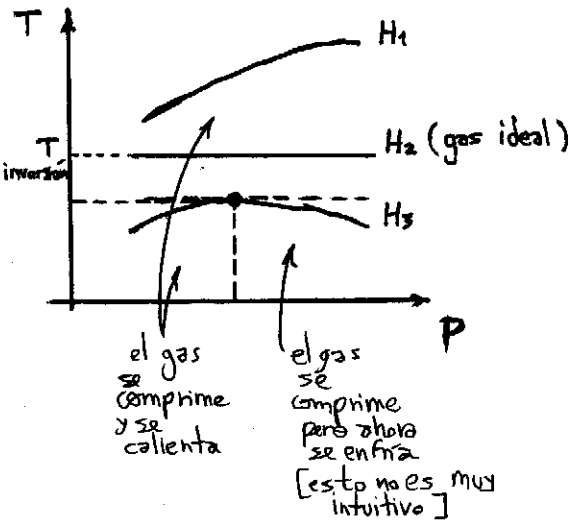 T
H1
T
inversión
H2 (gas ideal)
H3
P
el gas
se
comprime
y se
calienta
el gas
se
comprime
pero ahora
se enfría
[esto no es muy
intuitivo]